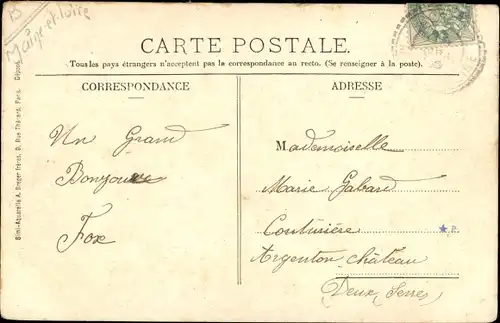 B
Maine-et-loire
CARTE POSTALE.
Tous les pays étrangers n'acceptent pas la correspondance au recto. (Se renseigner à la poste).
CORRESPONDANCE
ADRESSE
Un Grand
Bonjour
Fox
Mademoiselle
Marie Gabard
Couturière
Argenton-Château
Deux Sèvres
★ P.
Simi-Aquarelle A. Breger Frères, 9, Rue Thénard, Paris. Déposé.